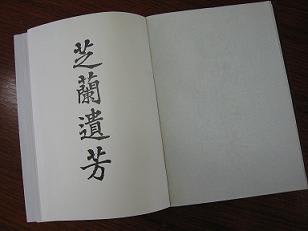 芝蘭遺芳